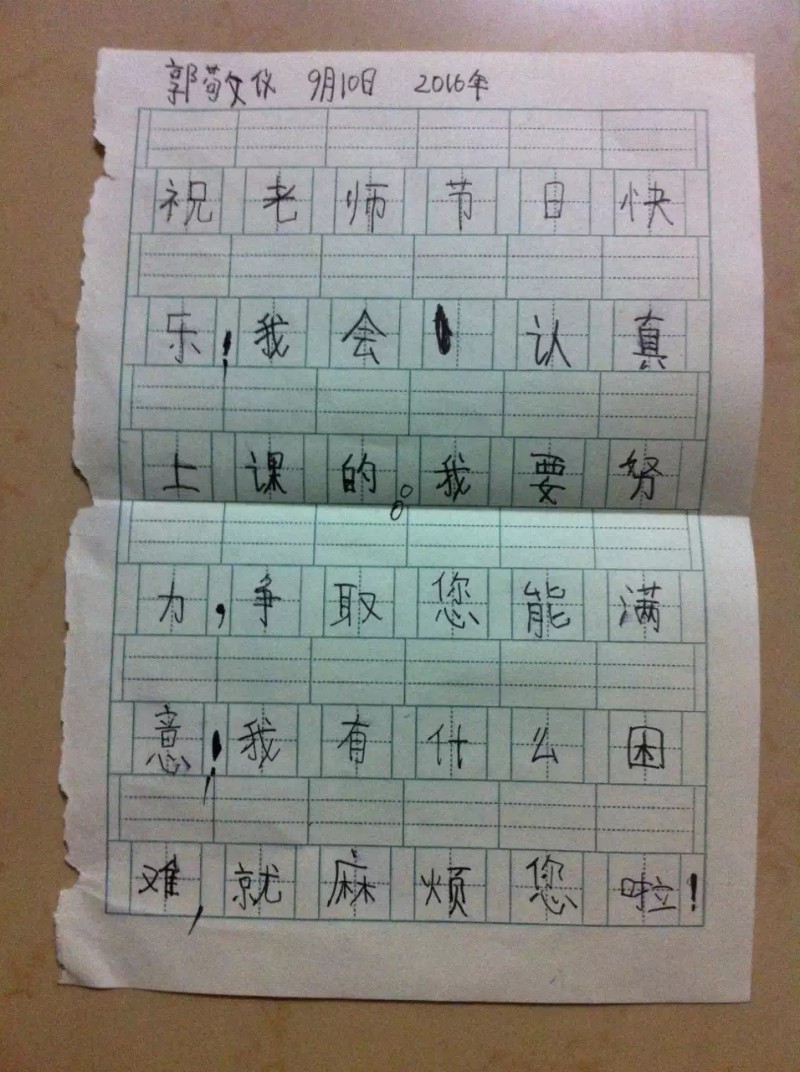 郭敬文仪 9月10日 2016年
祝老师节日快
乐！我会认真
上课的。我要努
力，争取您能满
意！我有什么困
难，就麻烦您啦！